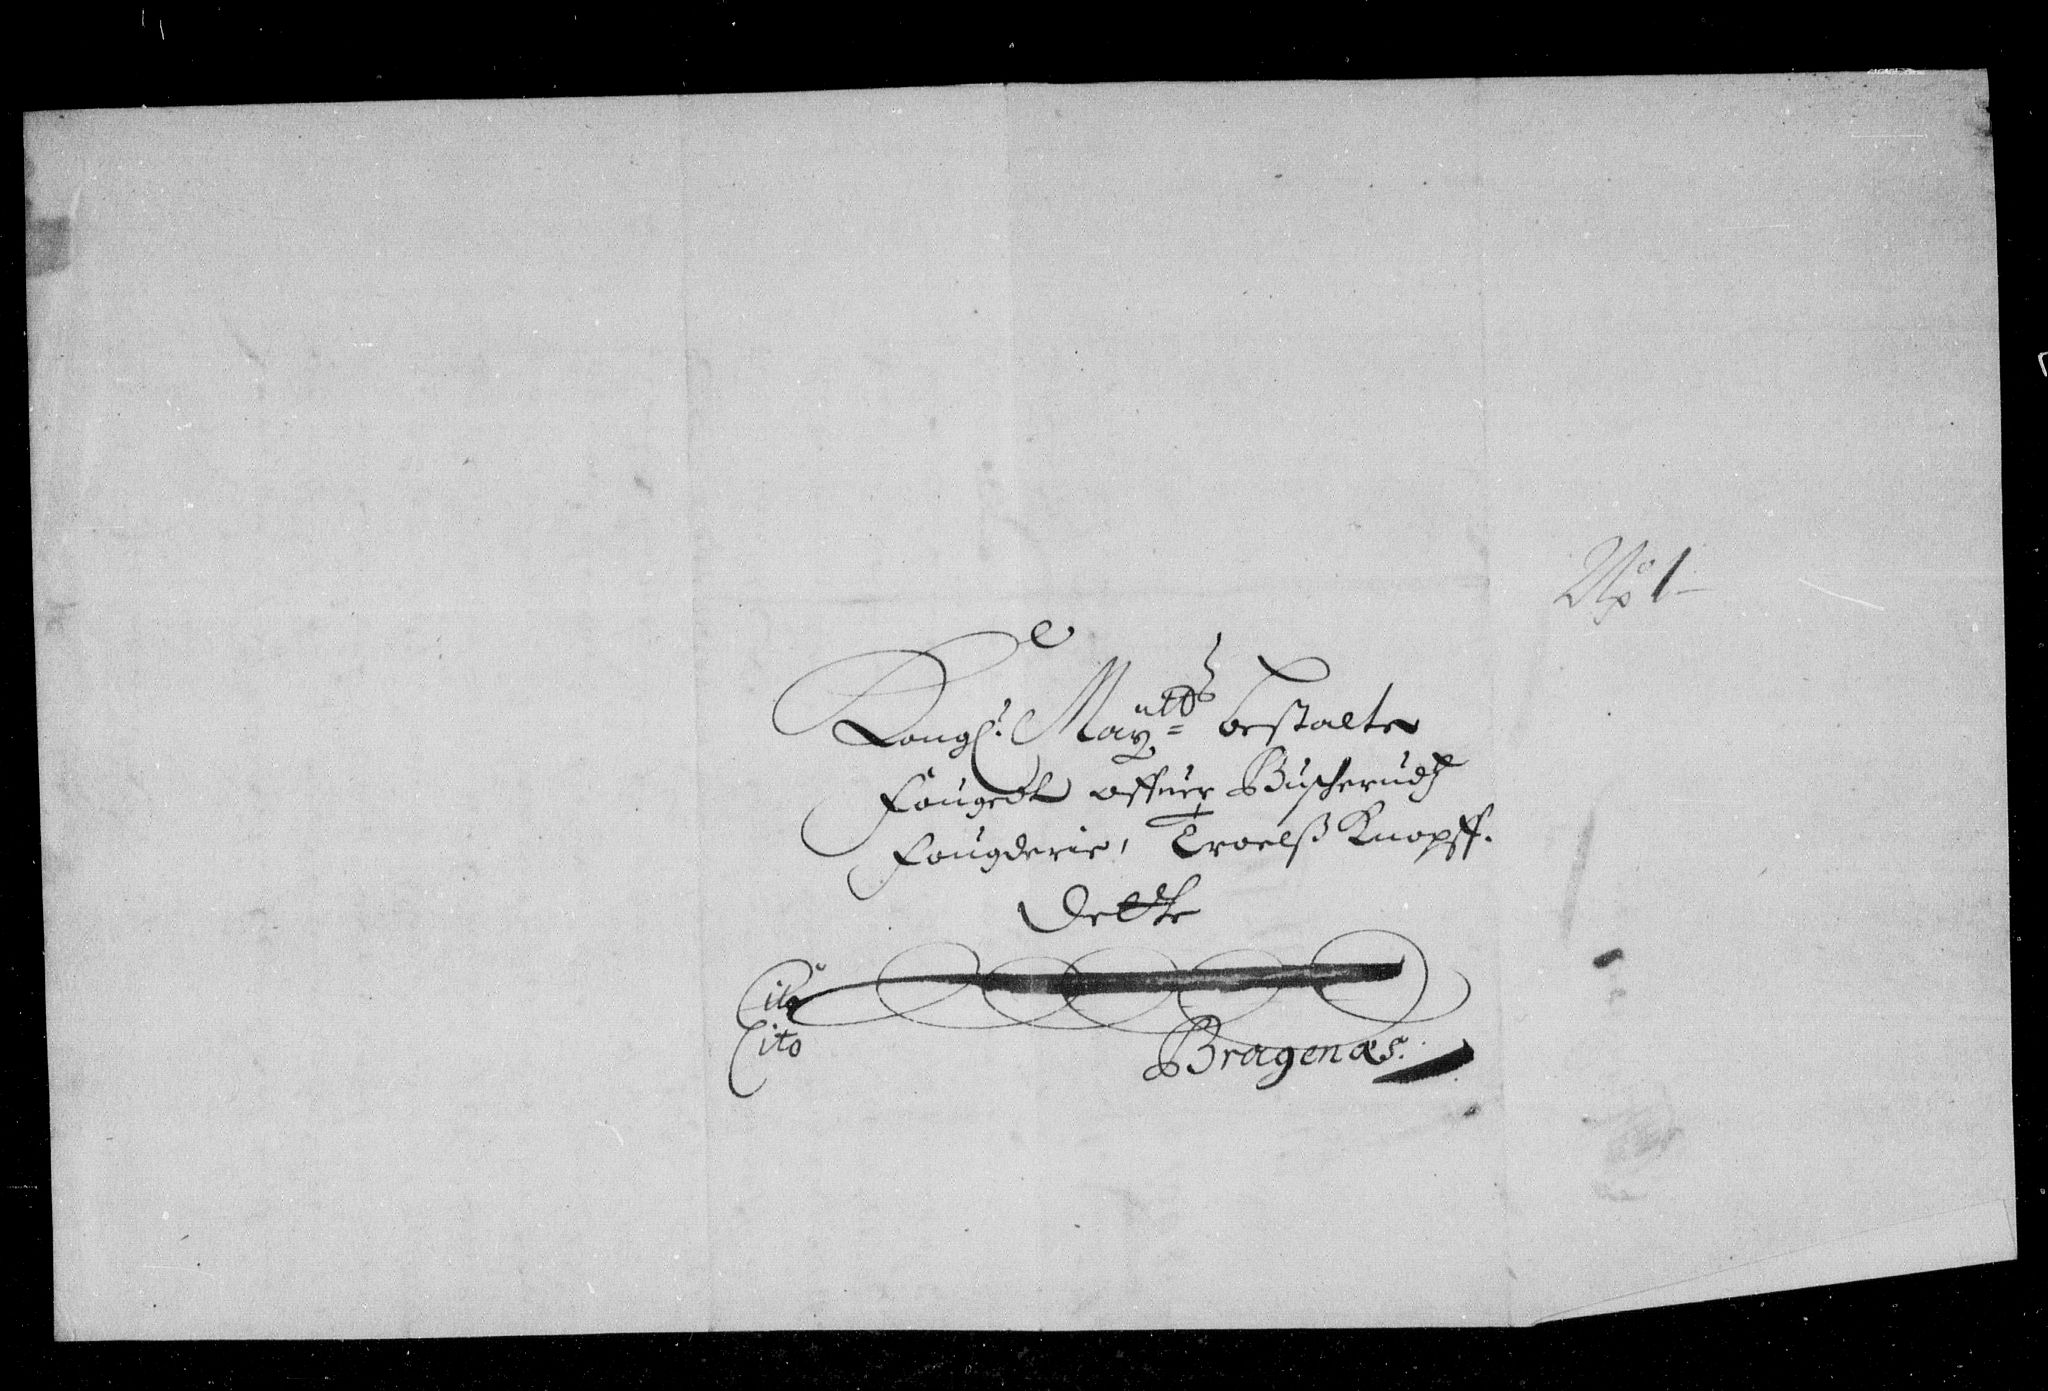 No 1
Kongl: Maytts bestalte
Fougedt offuer Buscheruds
Fougderie, Troelß Knopff.
Dette
Cito
Cito
Bragenæs.